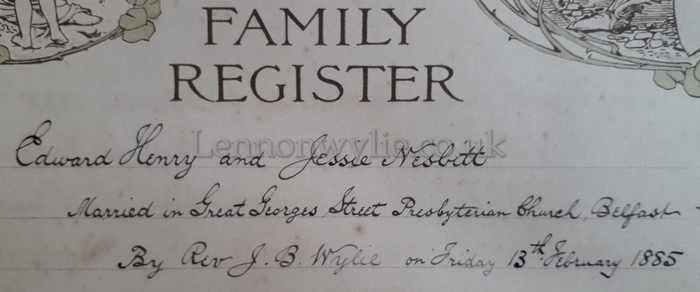 FAMILY
REGISTER
Lennonwylie.co.uk
Edward Henry and Jessie Nesbitt
Married in Great Georges Street Presbyterian Church, Belfast
By Rev J. B. Wylie on Friday 13th February 1885